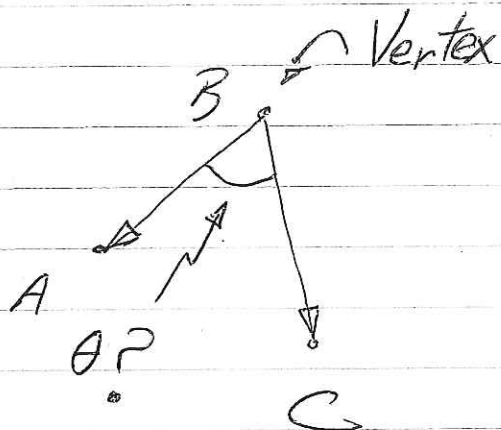 Vertex
B
A
θ?
C